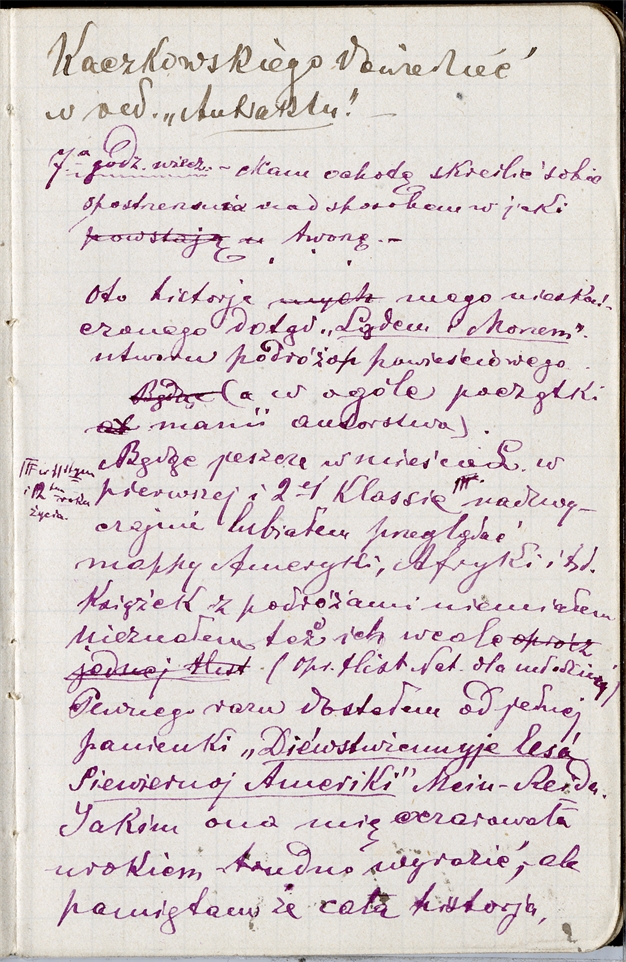 Kaczkowskiego
w red. „Antraktu".
7a godz. wiecz. – Mam ochotę skreślić sobie
spostrzenia nad sposobem w jaki
powstają u tworzę. –
Oto historja mych mego nieskoń-
czonego dotąd „Lądem i Morzem".
utworu podróżop powieściowego.
Będąc (a w ogóle początki
manii autorstwa).
Będąc jeszcze w mieście Ł. w
pierwszej i 2ej Klassie III nadzwy-
III w 11stym
i 12tm roku
życia.
czajnie lubiałem przeglądać
mappy Ameryki, Afryki i t.d.
Książek z podróżami niemiałem
nieznałem też ich wcale oprócz
jednej Hist. (opr. Hist. Nat. dla młodzieży)
Pewnego razu dostałem od jednej
panienki „Diéwstwiennyje lesá
Siewiernoj Ameriki" Mein-Reida.
Jakim ona mię oczarowała
urokiem trudno wyrazić, ale
pamiętam że cała historja,